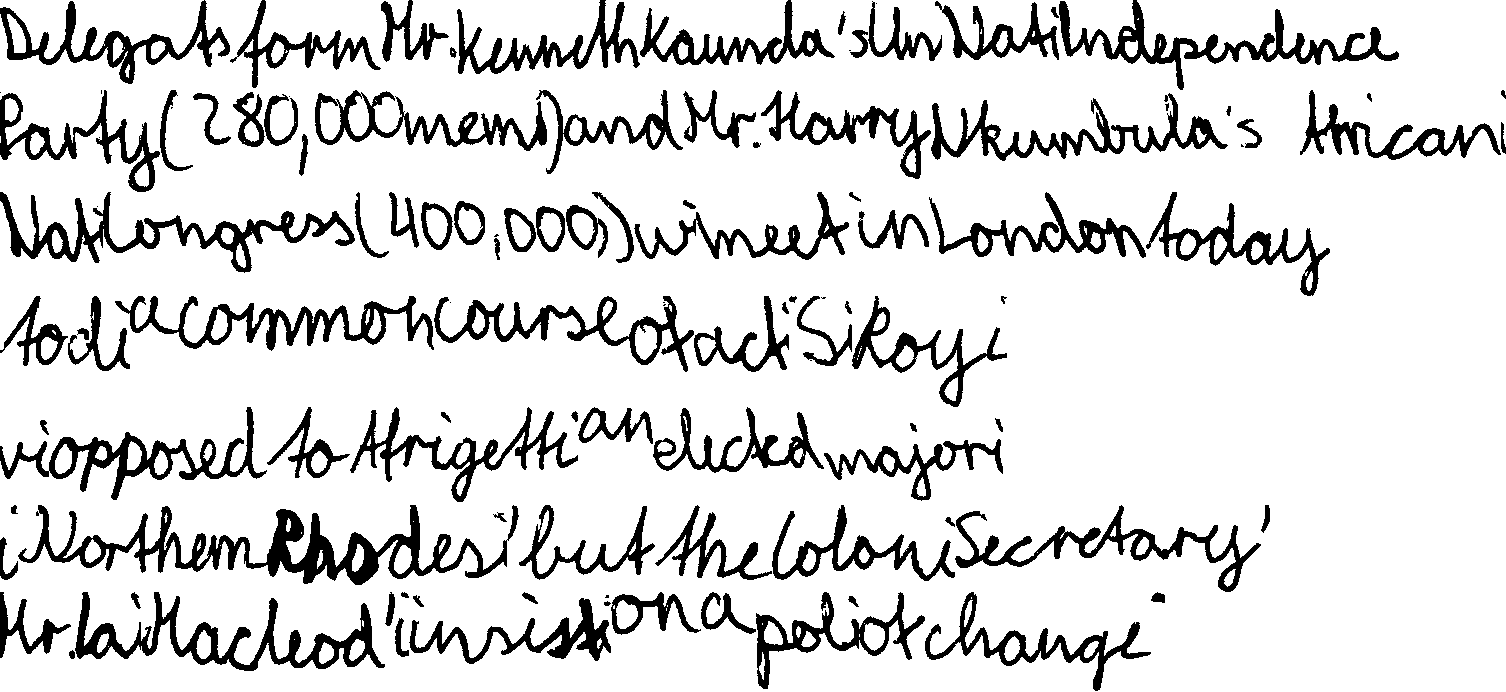 Delegats form Mr. Kenneth Kaunda's Uni Nati Independence
Party (280,000 mem) and Mr. Harry Nkumbula's African
Nati Congress (400,000) wi meet in London today
to di a common course of acti Si Roy
vi opposed to Afri getti an elected majori
i Northern Rhodesi' but the Coloni Secretary'
Mr. Iai Macleod' i insisti on a poli of change